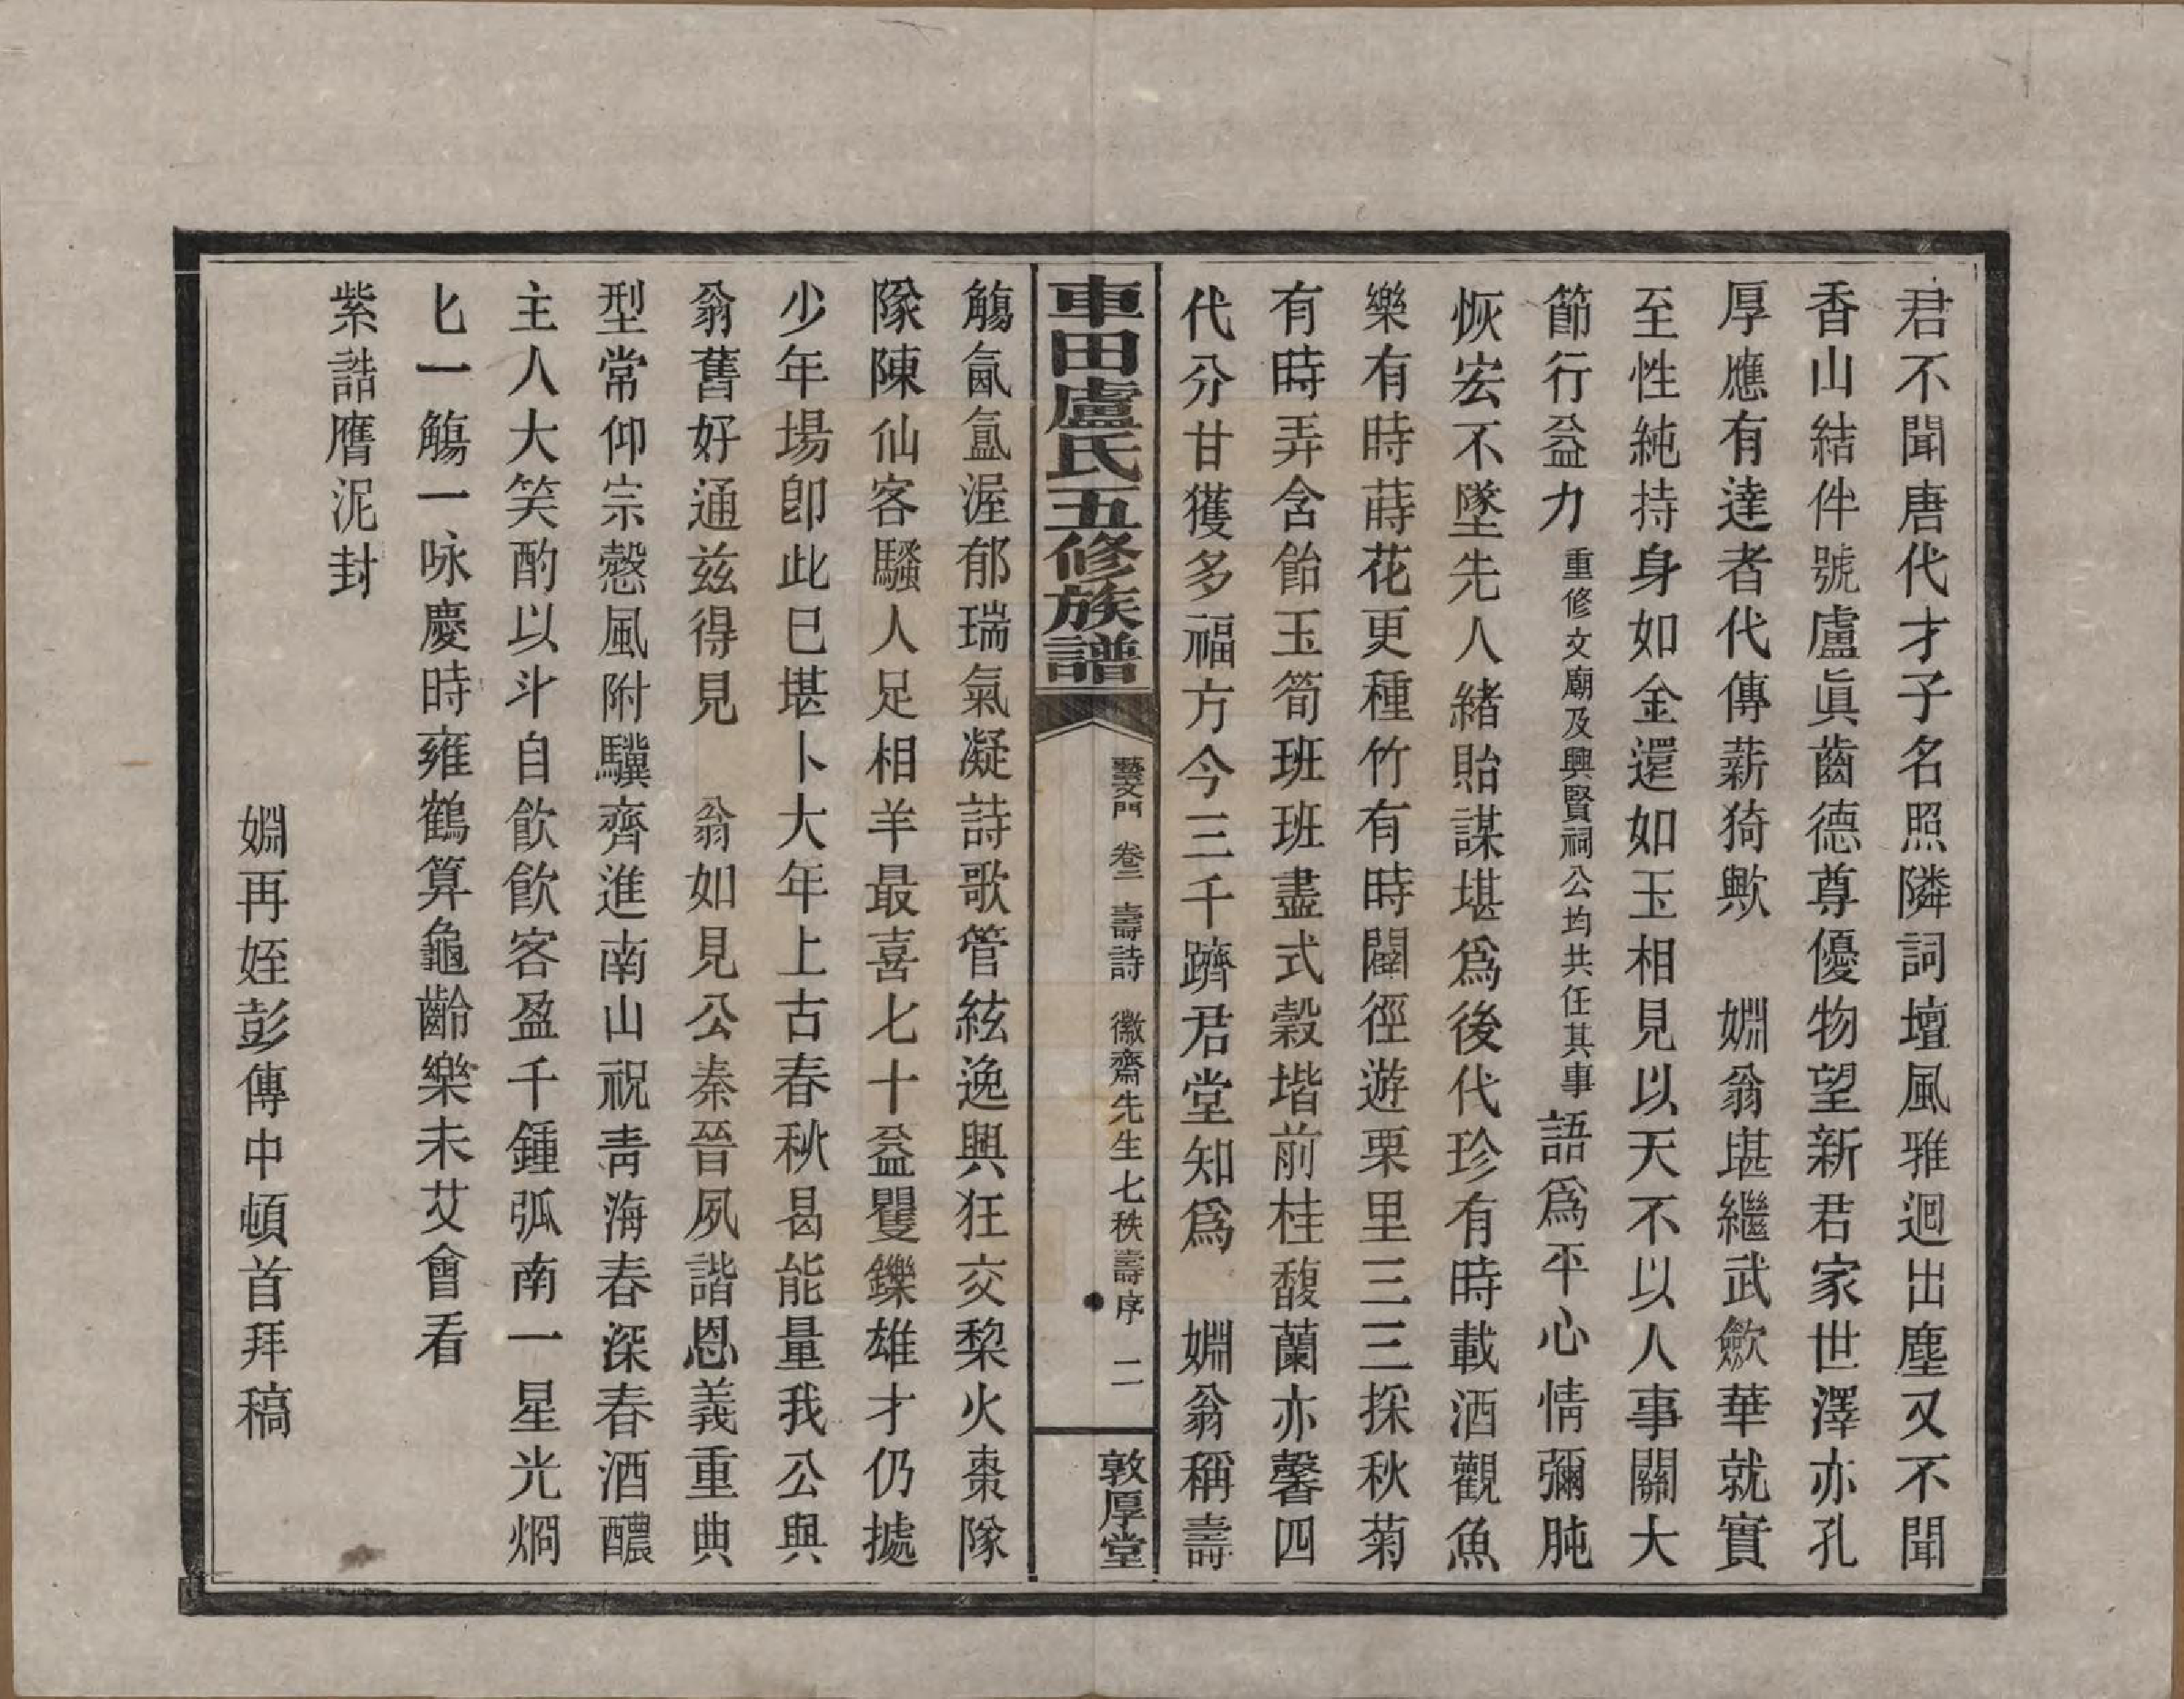 君不聞唐代才子名照隣詞壇風雅迥出塵又不聞
香山結伴號盧眞齒德尊優物望新君家世澤亦孔
厚應有達者代傳薪猗歟　姻翁堪繼武歛華就實
至性純持身如金還如玉相見以天不以人事關大
節行益力重修文廟及興賢祠公均共任其事語爲平心情彌肫
恢宏不墜先人緒貽謀堪爲後代珍有時載酒觀魚
樂有時蒔花更種竹有時闢徑遊栗里三三採秋菊
有時弄含飴玉筍班班盡式穀堦前桂馥蘭亦馨四
代分甘獲多福方今三千躋君堂知爲　姻翁稱壽
車田盧氏五修族譜
藝文門　卷三　壽詩　徽齋先生七秩壽序　二
敦厚堂
觴氤氳渥郁瑞氣凝詩歌管絃逸興狂交棃火棗隊
隊陳仙客騷人足相羊最喜七十益矍鑠雄才仍摅
少年場卽此巳堪卜大年上古春秋曷能量我公與
翁舊好通兹得見　翁如見公秦晉夙諧恩義重典
型常仰宗慤風附驥齊進南山祝靑海春深春酒醲
主人大笑酌以斗自飮飮客盈千鍾弧南一星光烱
匕一觴一咏慶時雍鶴算龜齡樂未艾會看
紫誥膺泥封
姻再姪彭傳中頓首拜稿